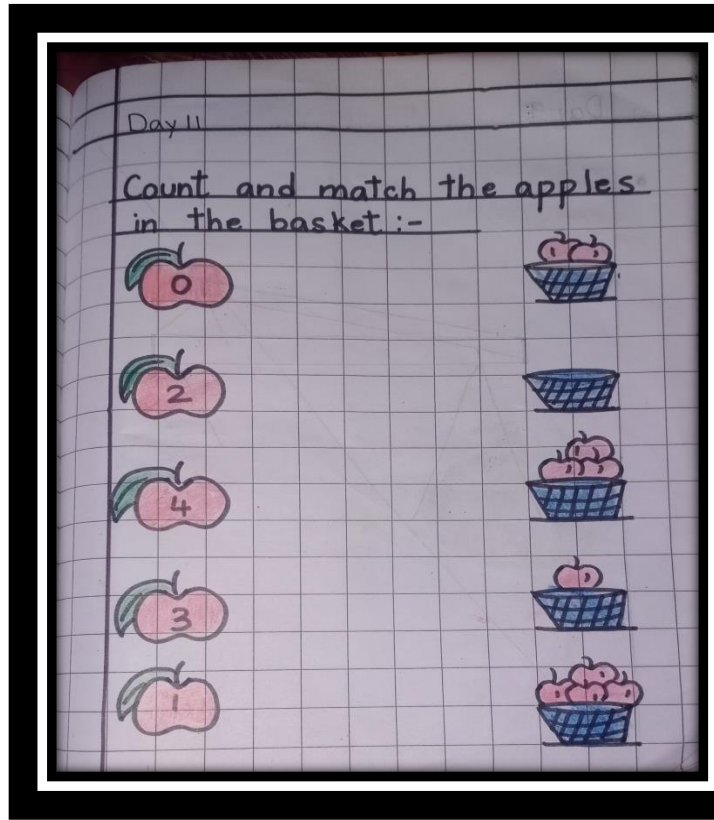 Day 11
Count and match the apples
in the basket :-
0
2
4
3
1